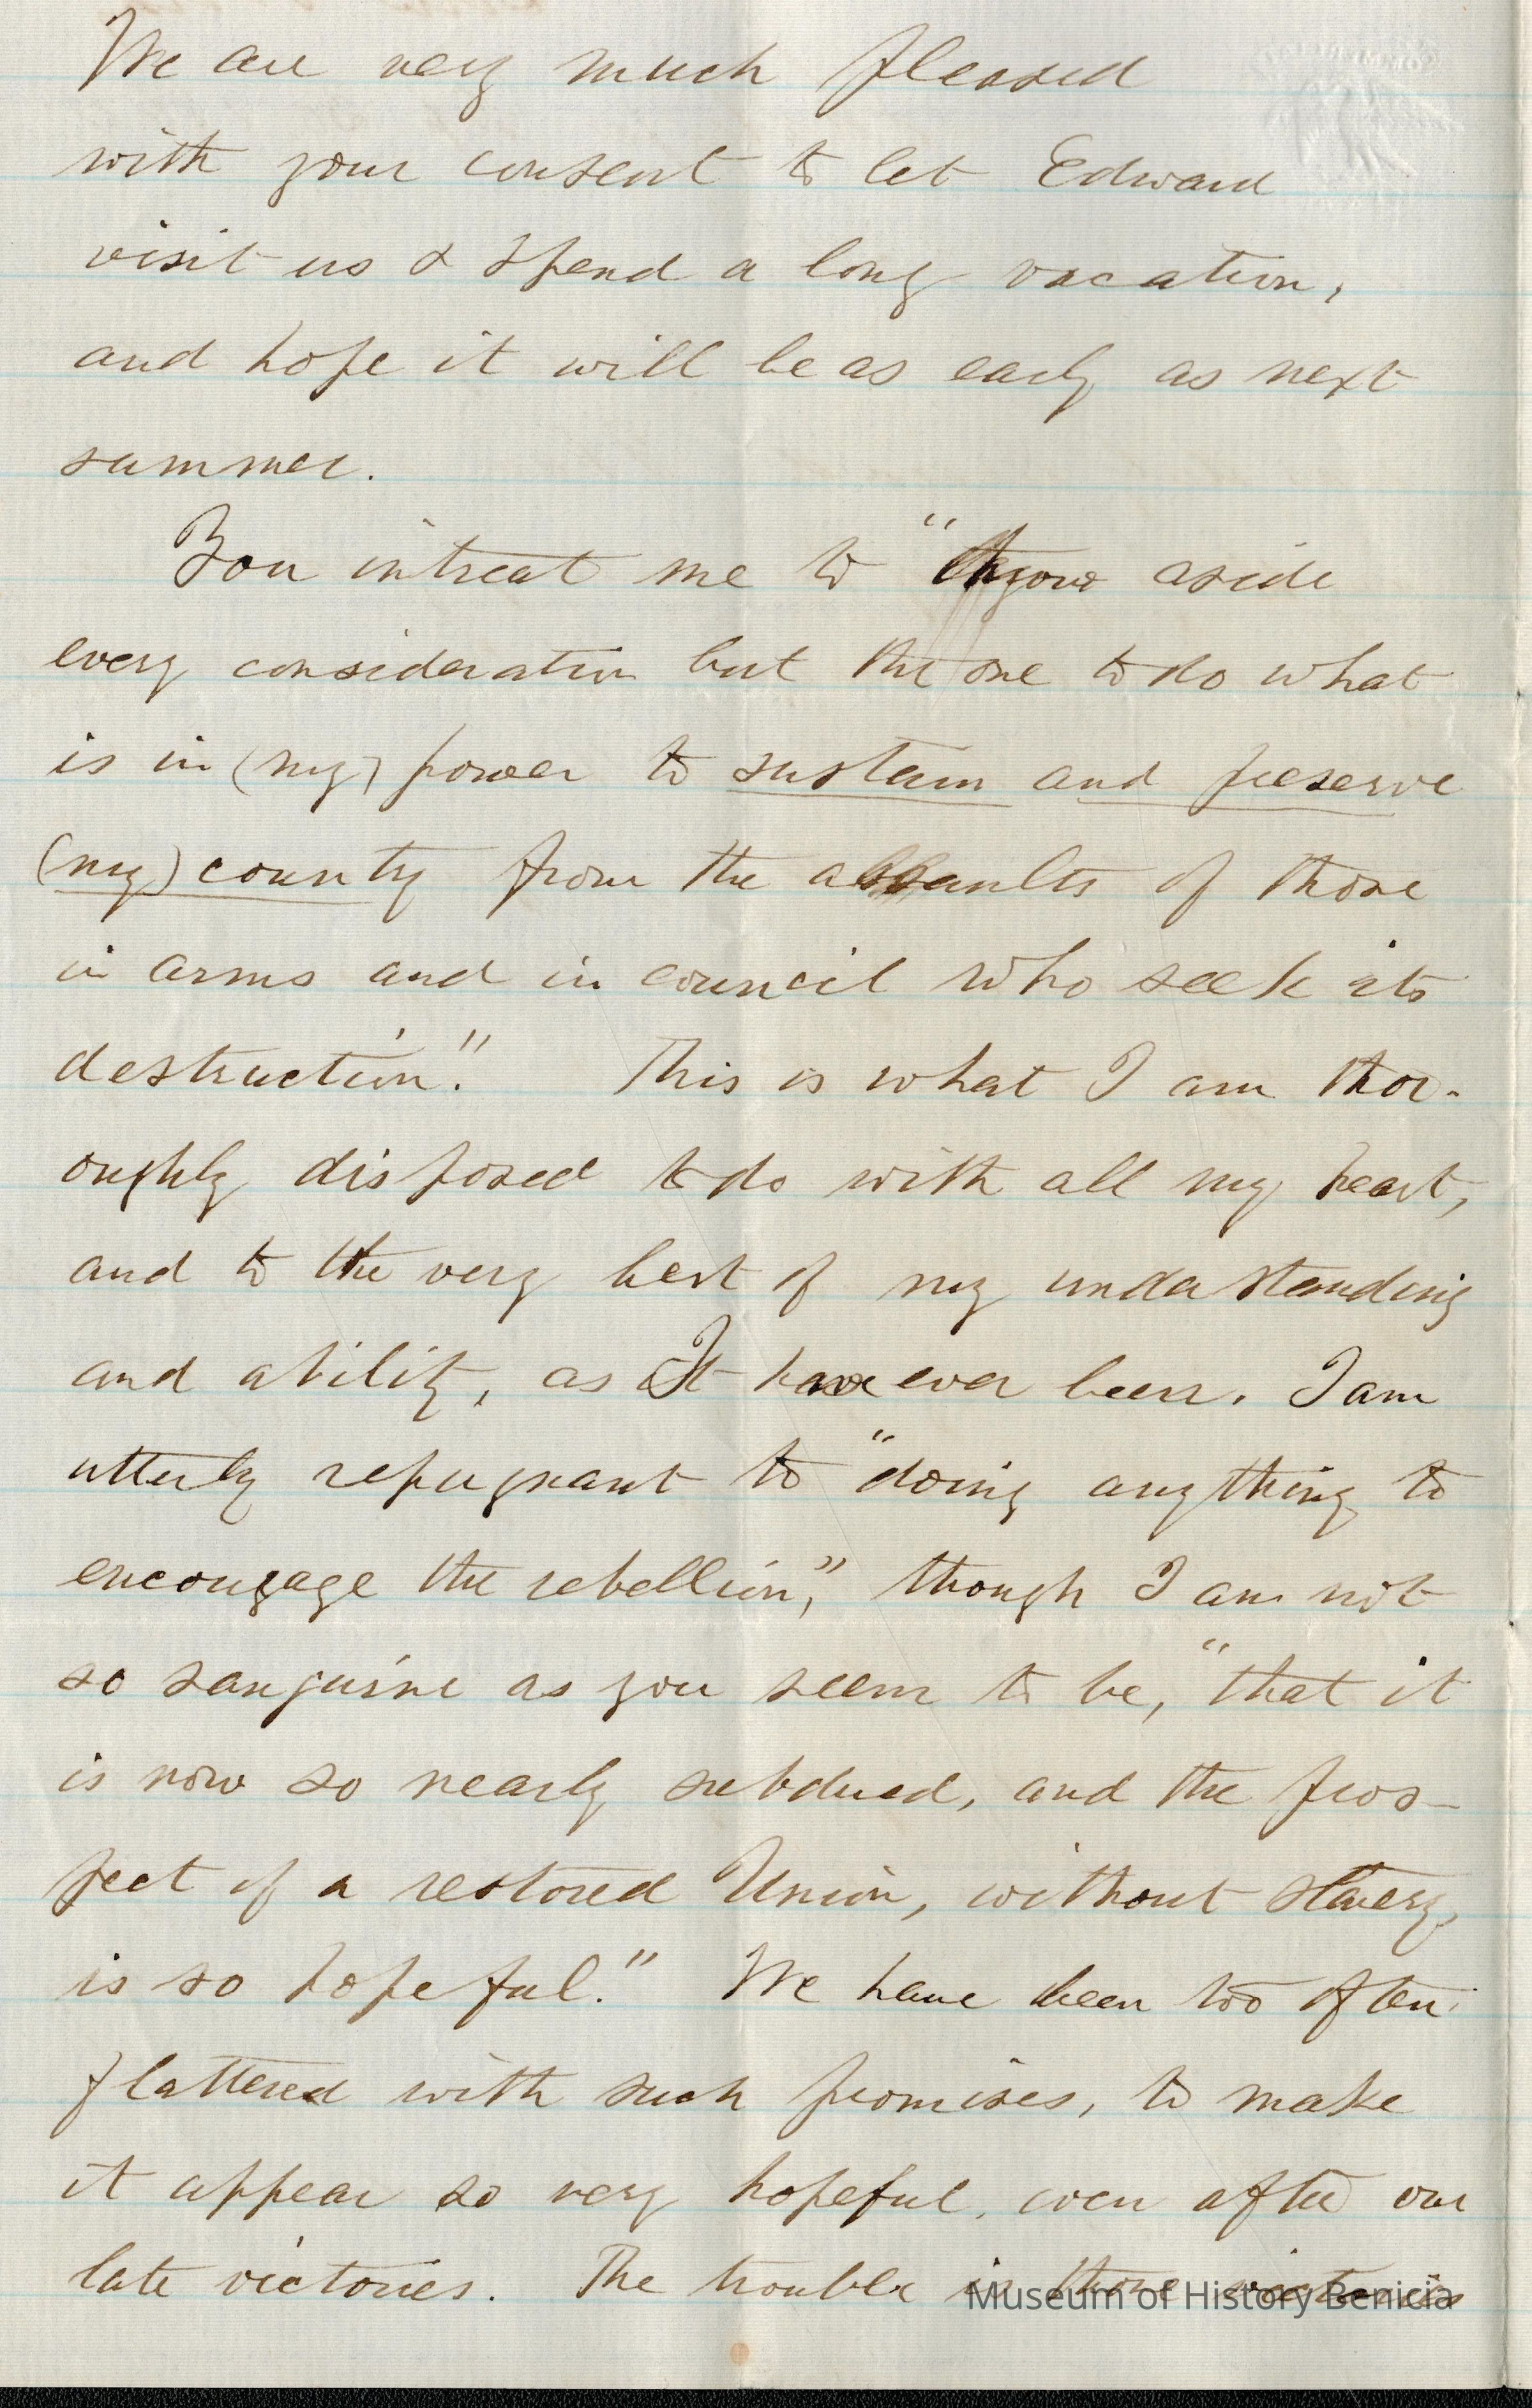 We are very much pleased
with your consent to let Edward
visit us & spend a long vacation,
and hope it will be as early as next
summer.
You intreat me to "throw aside
every consideration but the one to do what
is in (my) power to sustain and preserve
(my) county from the assaults of those
in arms and in council who seek its
destruction." This is what I am thor-
oughly disposed to do with all my heart,
and to the very best of my understanding
and ability, as I have ever been. I am
utterly repugnant to "doing anything to
encourage the rebellion," though I am not
so sanguine as you seem to be, "that it
is now so nearly subdued, and the pros-
pect of a restored Union, without slavery,
is so hopeful." We have been too often
flattered with such promises, to make
it appear so very hopeful, even after our
late victories. The trouble is those victories
Museum of History Benicia